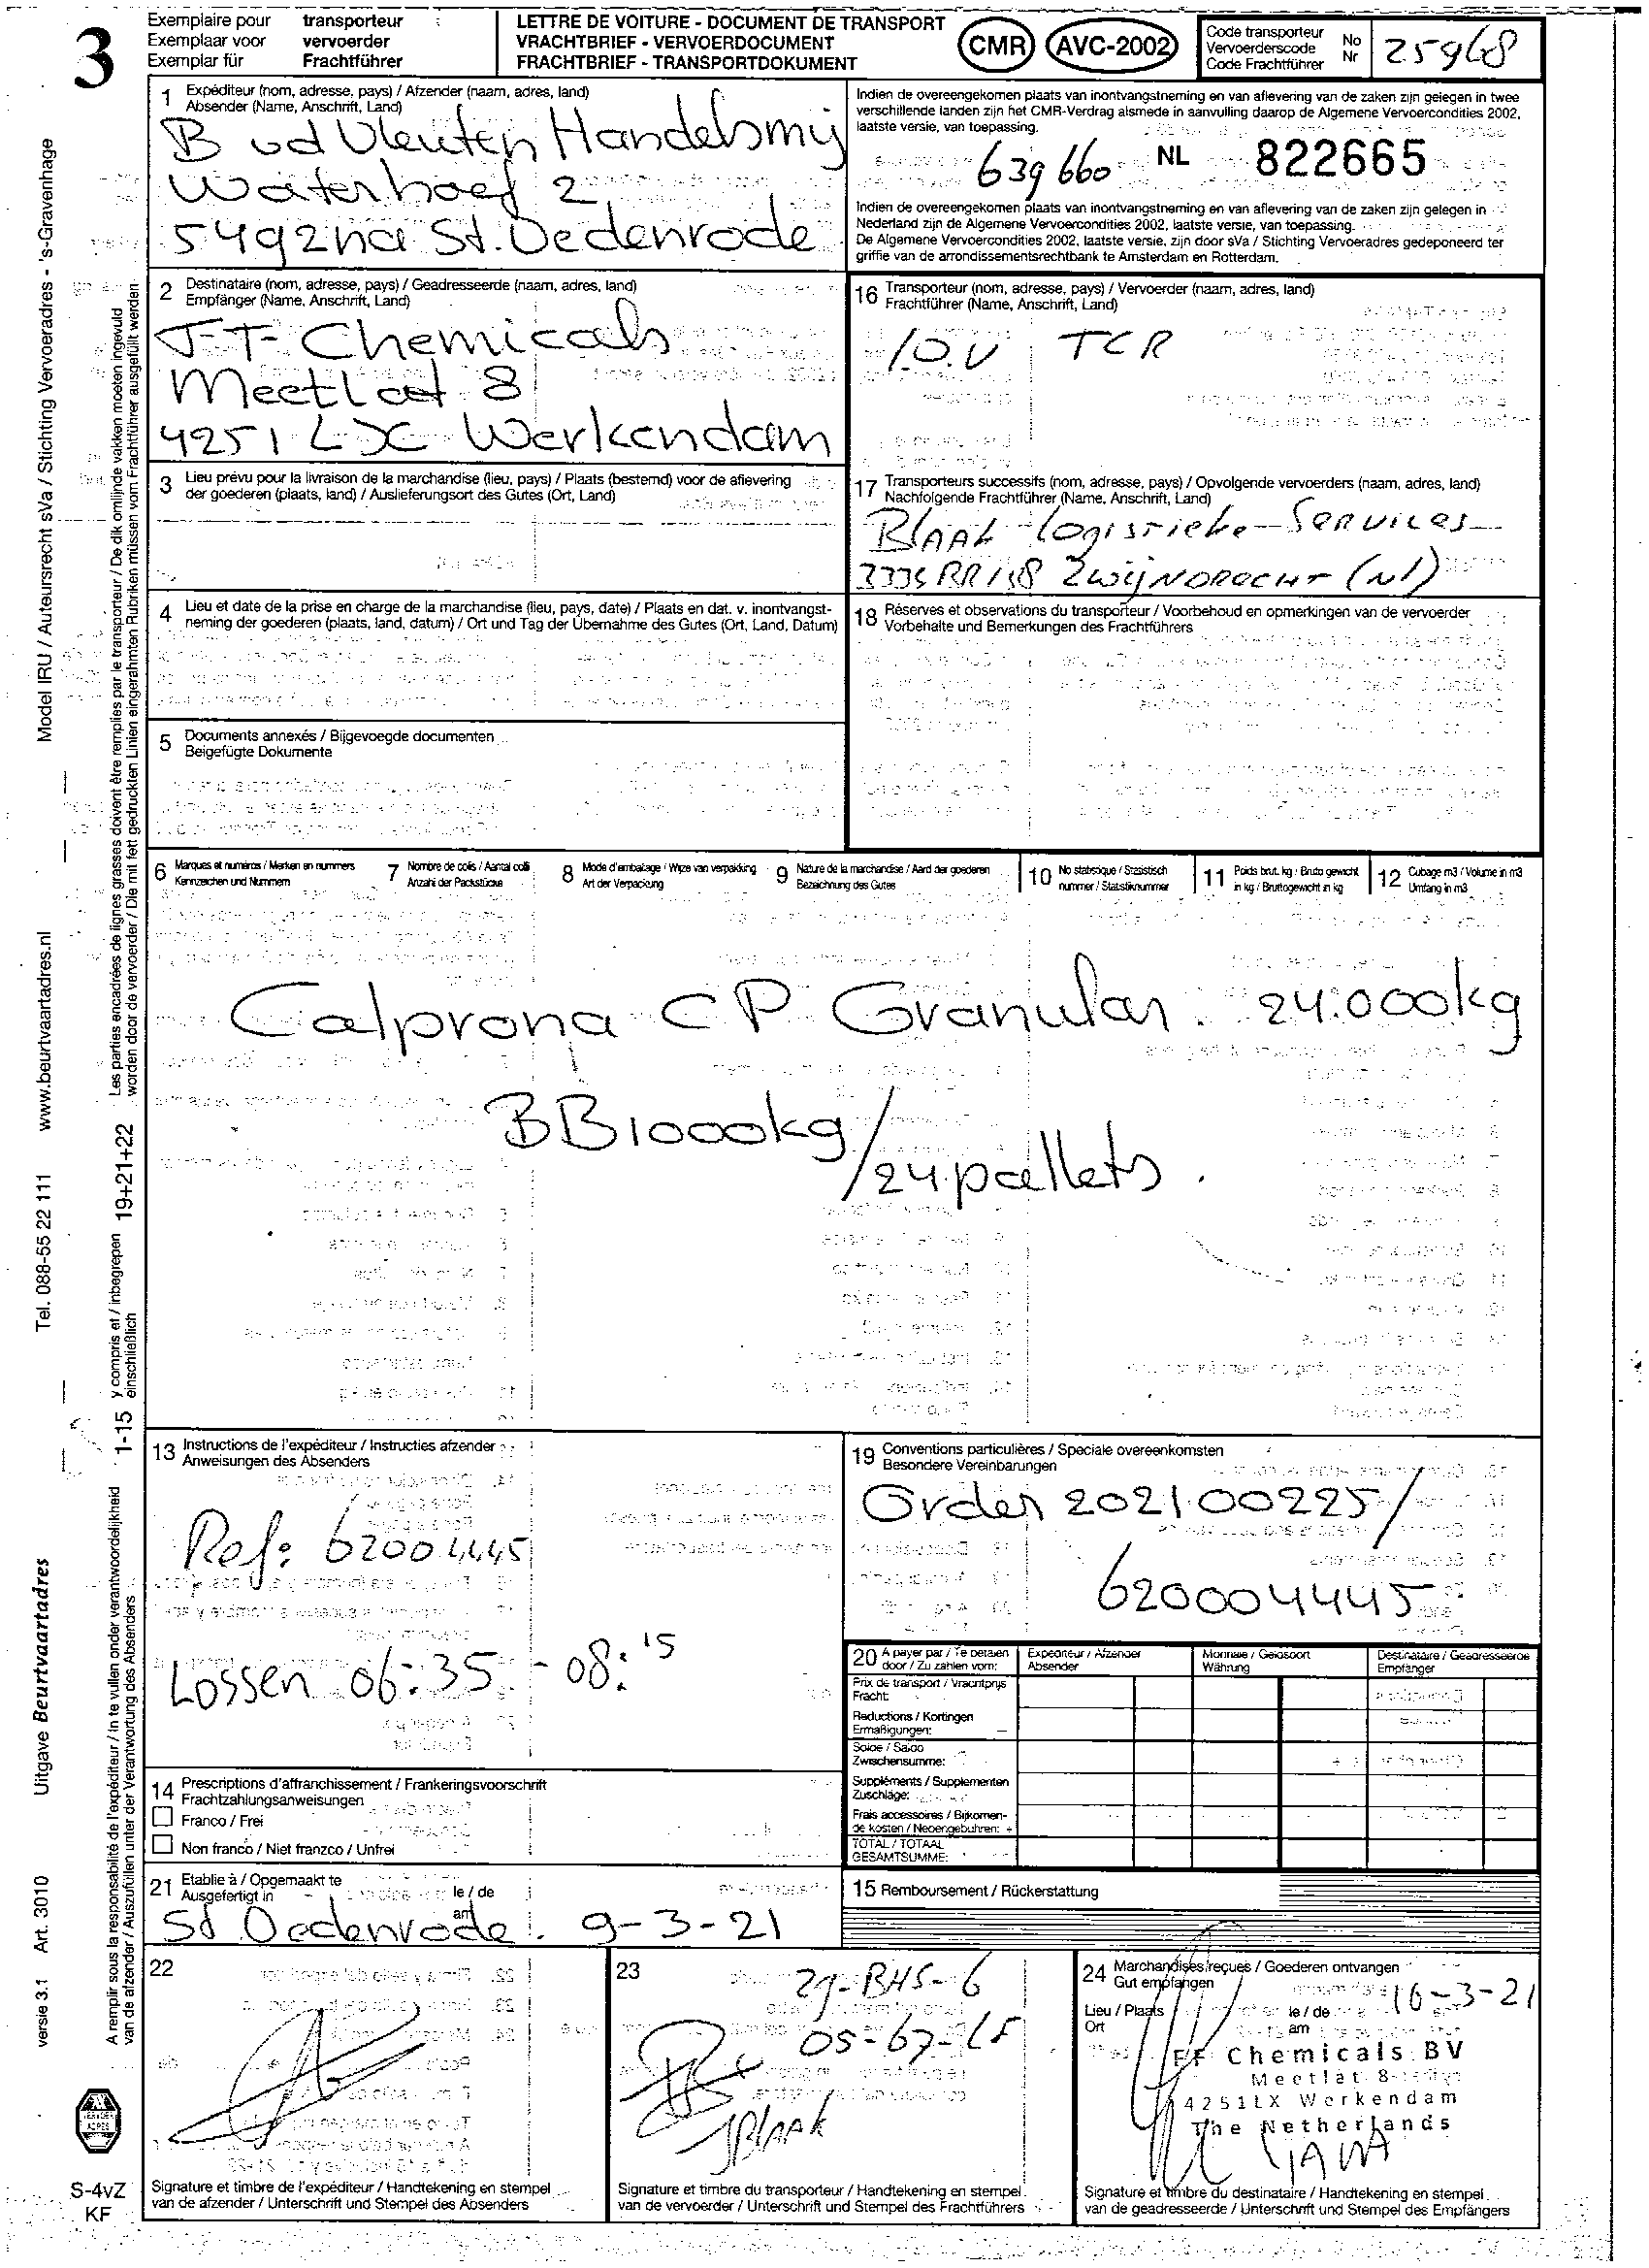 3
Exemplaire pour transporteur
Exemplaar voor vervoerder
Exemplar für Frachtführer
LETTRE DE VOITURE - DOCUMENT DE TRANSPORT
VRACHTBRIEF - VERVOERDOCUMENT
FRACHTBRIEF - TRANSPORTDOKUMENT
CMR AVC-2002
Code transporteur
Vervoerderscode
Code Frachtführer
No
Nr
25968
1 Expéditeur (nom, adresse, pays) / Afzender (naam, adres, land)
Absender (Name, Anschrift, Land)
B vd Vleuten Handelsmij
Waterhoef 2
5492na St. Oedenrode
Indien de overeengekomen plaats van inontvangstneming en van aflevering van de zaken zijn gelegen in twee
verschillende landen zijn het CMR-Verdrag alsmede in aanvulling daarop de Algemene Vervoercondities 2002,
laatste versie, van toepassing.
639660 NL 822665
Indien de overeengekomen plaats van inontvangstneming en van aflevering van de zaken zijn gelegen in
Nederland zijn de Algemene Vervoercondities 2002, laatste versie, van toepassing.
De Algemene Vervoercondities 2002, laatste versie, zijn door sVa / Stichting Vervoeradres gedeponeerd ter
griffie van de arrondissementsrechtbank te Amsterdam en Rotterdam.
2 Destinataire (nom, adresse, pays) / Geadresseerde (naam, adres, land)
Empfänger (Name, Anschrift, Land)
Chemicals
Meetlat 8
4251 LX Werkendam
16 Transporteur (nom, adresse, pays) / Vervoerder (naam, adres, land)
Frachtführer (Name, Anschrift, Land)
I.O.V TCR
3 Lieu prévu pour la livraison de la marchandise (lieu, pays) / Plaats (bestemd) voor de aflevering
der goederen (plaats, land) / Auslieferungsort des Gutes (Ort, Land)
17 Transporteurs successifs (nom, adresse, pays) / Opvolgende vervoerders (naam, adres, land)
Nachfolgende Frachtführer (Name, Anschrift, Land)
Blaak Logistieke Services
ZWIJNDRECHT (Nl)
4 Lieu et date de la prise en charge de la marchandise (lieu, pays, date) / Plaats en dat. v. inontvangst-
neming der goederen (plaats, land, datum) / Ort und Tag der Übernahme des Gutes (Ort, Land, Datum)
18 Réserves et observations du transporteur / Voorbehoud en opmerkingen van de vervoerder
Vorbehalte und Bemerkungen des Frachtführers
5 Documents annexés / Bijgevoegde documenten
Beigefügte Dokumente
6 Marques et numéros / Merken en nummers
Kennzeichen und Nummern
7 Nombre de colis / Aantal colli
Anzahl der Packstücke
8 Mode d'emballage / Wijze van verpakking
Art der Verpackung
9 Nature de la marchandise / Aard der goederen
Bezeichnung des Gutes
10 No statistique / Statistisch
nummer / Statistiknummer
11 Poids brut. kg / Bruto gewicht
in kg / Bruttogewicht in kg
12 Cubage m3 / Volume in m3
Umfang in m3
Calprona CP Granular 24.000kg
BB1000kg/24 pallets.
13 Instructions de l'expéditeur / Instructies afzender
Anweisungen des Absenders
Ref: 62004445
Lossen 06:35 - 08:15
19 Conventions particulières / Speciale overeenkomsten
Besondere Vereinbarungen
Order 202100225/
620004445
20 A payer par / Te betalen
door / Zu zahlen vom:
Expéditeur / Afzender
Absender
Monnaie / Geldsoort
Währung
Destinataire / Geadresseerde
Empfänger
Prix de transport / Vrachtprijs
Fracht:
Reductions / Kortingen
Ermäßigungen: -
Solde / Saldo
Zwischensumme:
Suppléments / Supplementen
Zuschläge:
Frais accessoires / Bijkomen-
de kosten / Nebengebühren: +
TOTAL / TOTAAL
GESAMTSUMME:
14 Prescriptions d'affranchissement / Frankeringsvoorschrift
Frachtzahlungsanweisungen
Franco / Frei
Non franco / Niet franzco / Unfrei
21 Etablie à / Opgemaakt te
Ausgefertigt in
le / de
am
St Oedenrode 9-3-21
15 Remboursement / Rückerstattung
22
Signature et timbre de l'expéditeur / Handtekening en stempel
van de afzender / Unterschrift und Stempel des Absenders
23
29-BHS-6
05-67-LF
JBlaak
Signature et timbre du transporteur / Handtekening en stempel
van de vervoerder / Unterschrift und Stempel des Frachtführers
24 Marchandises reçues / Goederen ontvangen
Gut empfangen
Lieu / Plaats
Ort
le / de
am
10-3-21
Chemicals BV
Meetlat 8
4251LX Werkendam
The Netherlands
Signature et timbre du destinataire / Handtekening en stempel
van de geadresseerde / Unterschrift und Stempel des Empfängers
Model IRU / Auteursrecht sVa / Stichting Vervoeradres - 's-Gravenhage
www.beurtvaartadres.nl
Tel. 088-55 22 111
Uitgave Beurtvaartadres
Art. 3010
versie 3.1
Les parties encadrées de lignes grasses doivent être remplies par le transporteur / De dik omlijnde vakken moeten ingevuld
worden door de vervoerder / Die mit fett gedruckten Linien eingerahmten Rubriken müssen vom Frachtführer ausgefüllt werden
19+21+22
y compris et / inbegrepen
einschließlich
1-15
A remplir sous la responsabilité de l'expéditeur / In te vullen onder verantwoordelijkheid
van de afzender / Auszufüllen unter der Verantwortung des Absenders
S-4vZ
KF